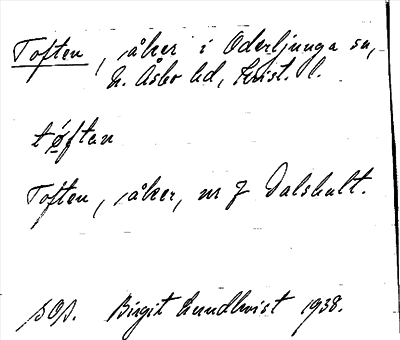 Toften, åker i Oderljunga sn,
N. Åsbo hd, Krist. l.
tøftan
Toften, åker, nr 7 Dalshult.
Birgit Lundkvist 1938.